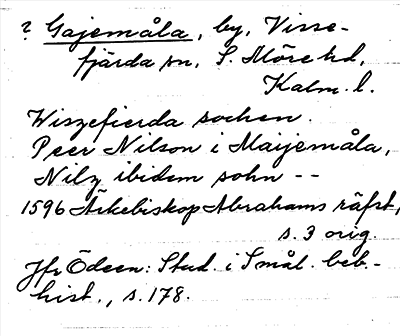 ? Gajemåla, by, Visse-
fjärda sn, S. Möre hd,
Kalm. l.
Wiszefierda sochen.
Peer Nilson i Maijemåla,
Nilz ibidem sohn --
1596 Ärkebiskop Abrahams räfst,
s. 3 orig.
Jfr Ödeen: Stud. i Smål. beb-
hist., s. 178.